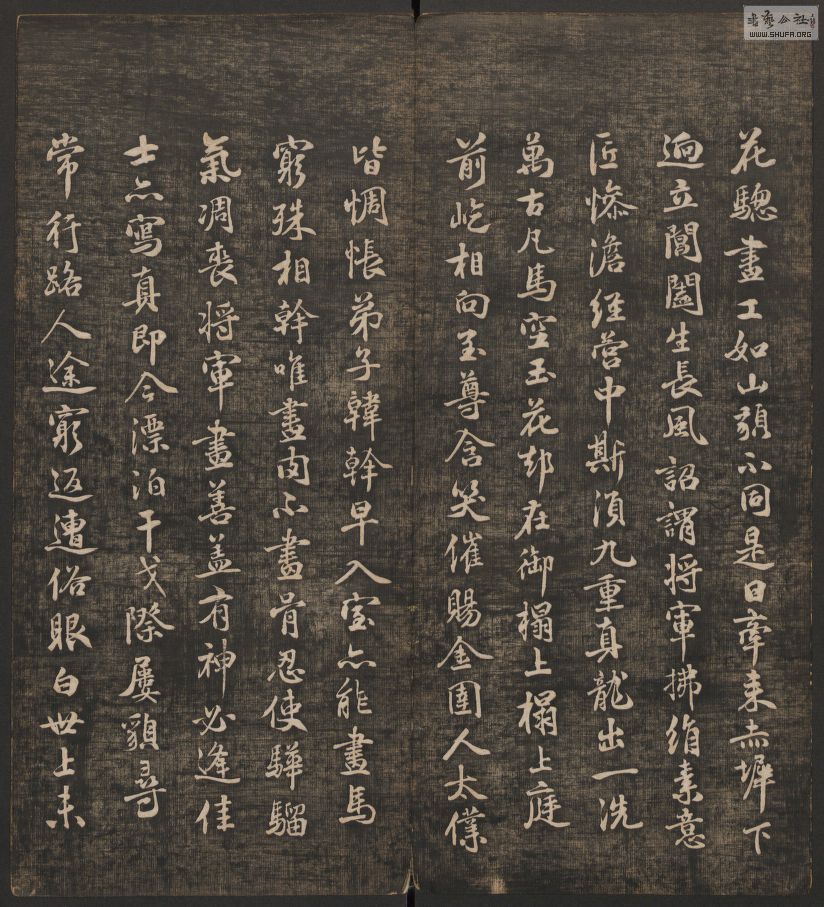 花驄畫工如山貌不同是日牽来赤墀下
迥立閶闔生長風詔謂将軍拂絹素意
匠慘澹經營中斯須九重真龍出一洗
萬古凡馬空玉花却在御榻上榻上庭
前屹相向至尊含笑催賜金圉人太僕
皆惆悵弟子韓幹早入室亦能畫馬
窮殊相幹唯畫肉不畫骨忍使驊騮
氣凋喪将軍畫善盖有神必逢佳
士亦寫真即今漂泊干戈際屢貌尋
常行路人途窮返遭俗眼白世上未
書藝公社
WWW.SHUFA.ORG